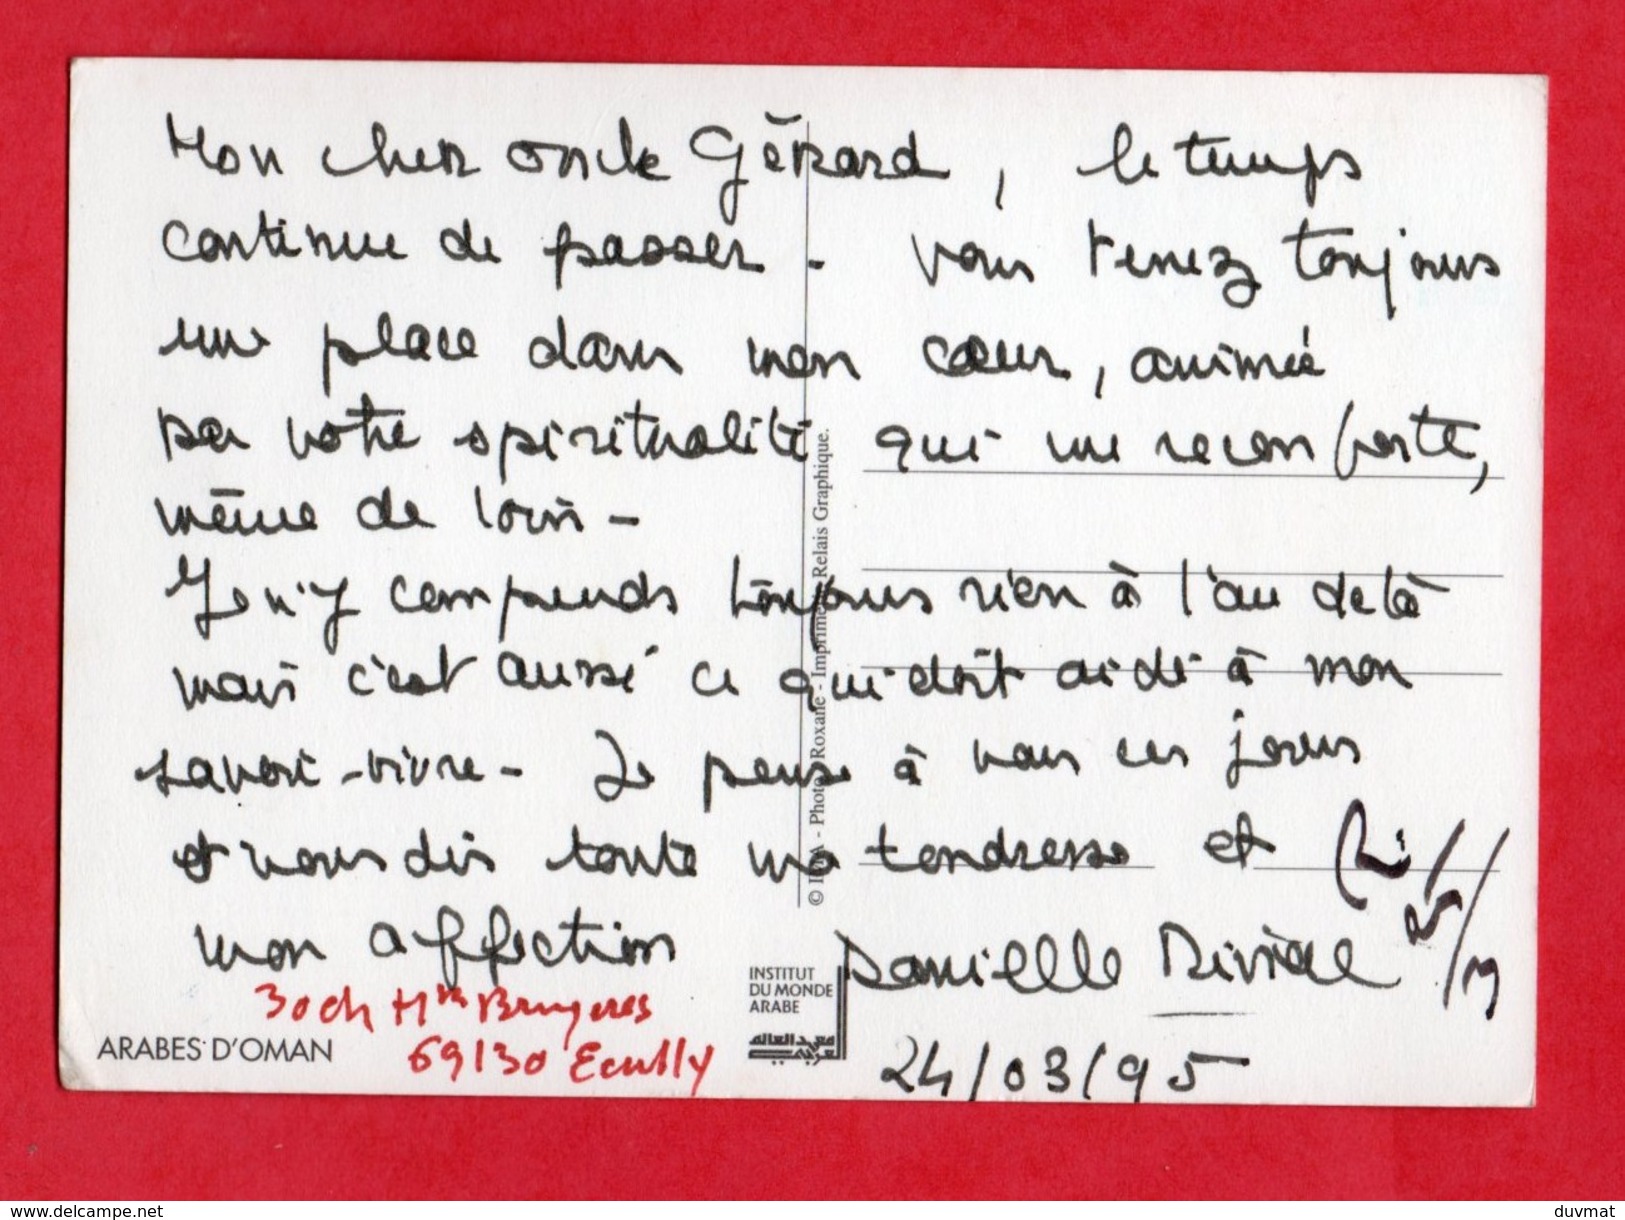 Mon cher oncle Gérard, le temps
continue de passer - vous tenez toujours
une place dans mon cœur, animée
par votre spiritualité qui me reconforte,
même de loin -
Je n'y comprends toujours rien à l'au delà
mais c'est aussi ce qui doit aidé à mon
savoir-vivre - Je pense à vous ces jours
et vous dis toute ma tendresse et
mon affection
Danielle
24/03/95
30 ch Hte Bruyeres
69130 Ecully
ARABES D'OMAN
INSTITUT
DU MONDE
ARABE
معهد العالم
العربي
© IMA - Photo : Roxane - Imprimerie Relais Graphique.
www.delcampe.net
duvmat